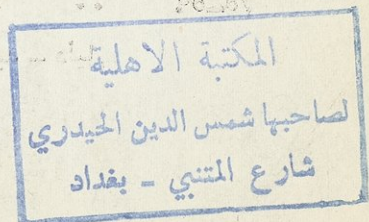 المكتبة الاهلية
لصاحبها شمس الدين الحيدري
شارع المتنبي - بغداد